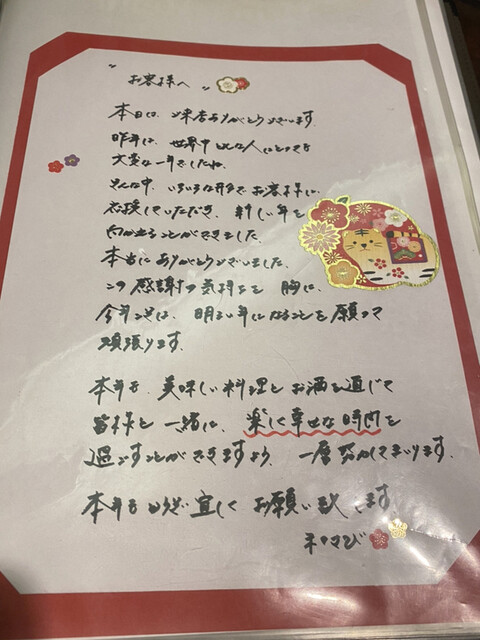 "お客様へ"
本日は、ご来店ありがとうございます。
昨年は、世界中どんな人にとっても
大変な一年でしたね。
そんな中、いろいろな形でお客様に、
応援していただき、新しい年を
迎えることができました。
本当にありがとうございました。
この感謝の気持ちを胸に、
今年こそは、明るい年になることを願って
頑張ります。
本年も、美味しい料理とお酒を通じて
皆様と一緒に、楽しく幸せな時間を
過ごすことができますよう、一層努力してまいります。
本年もどうぞ宜しくお願い致します。
和さび